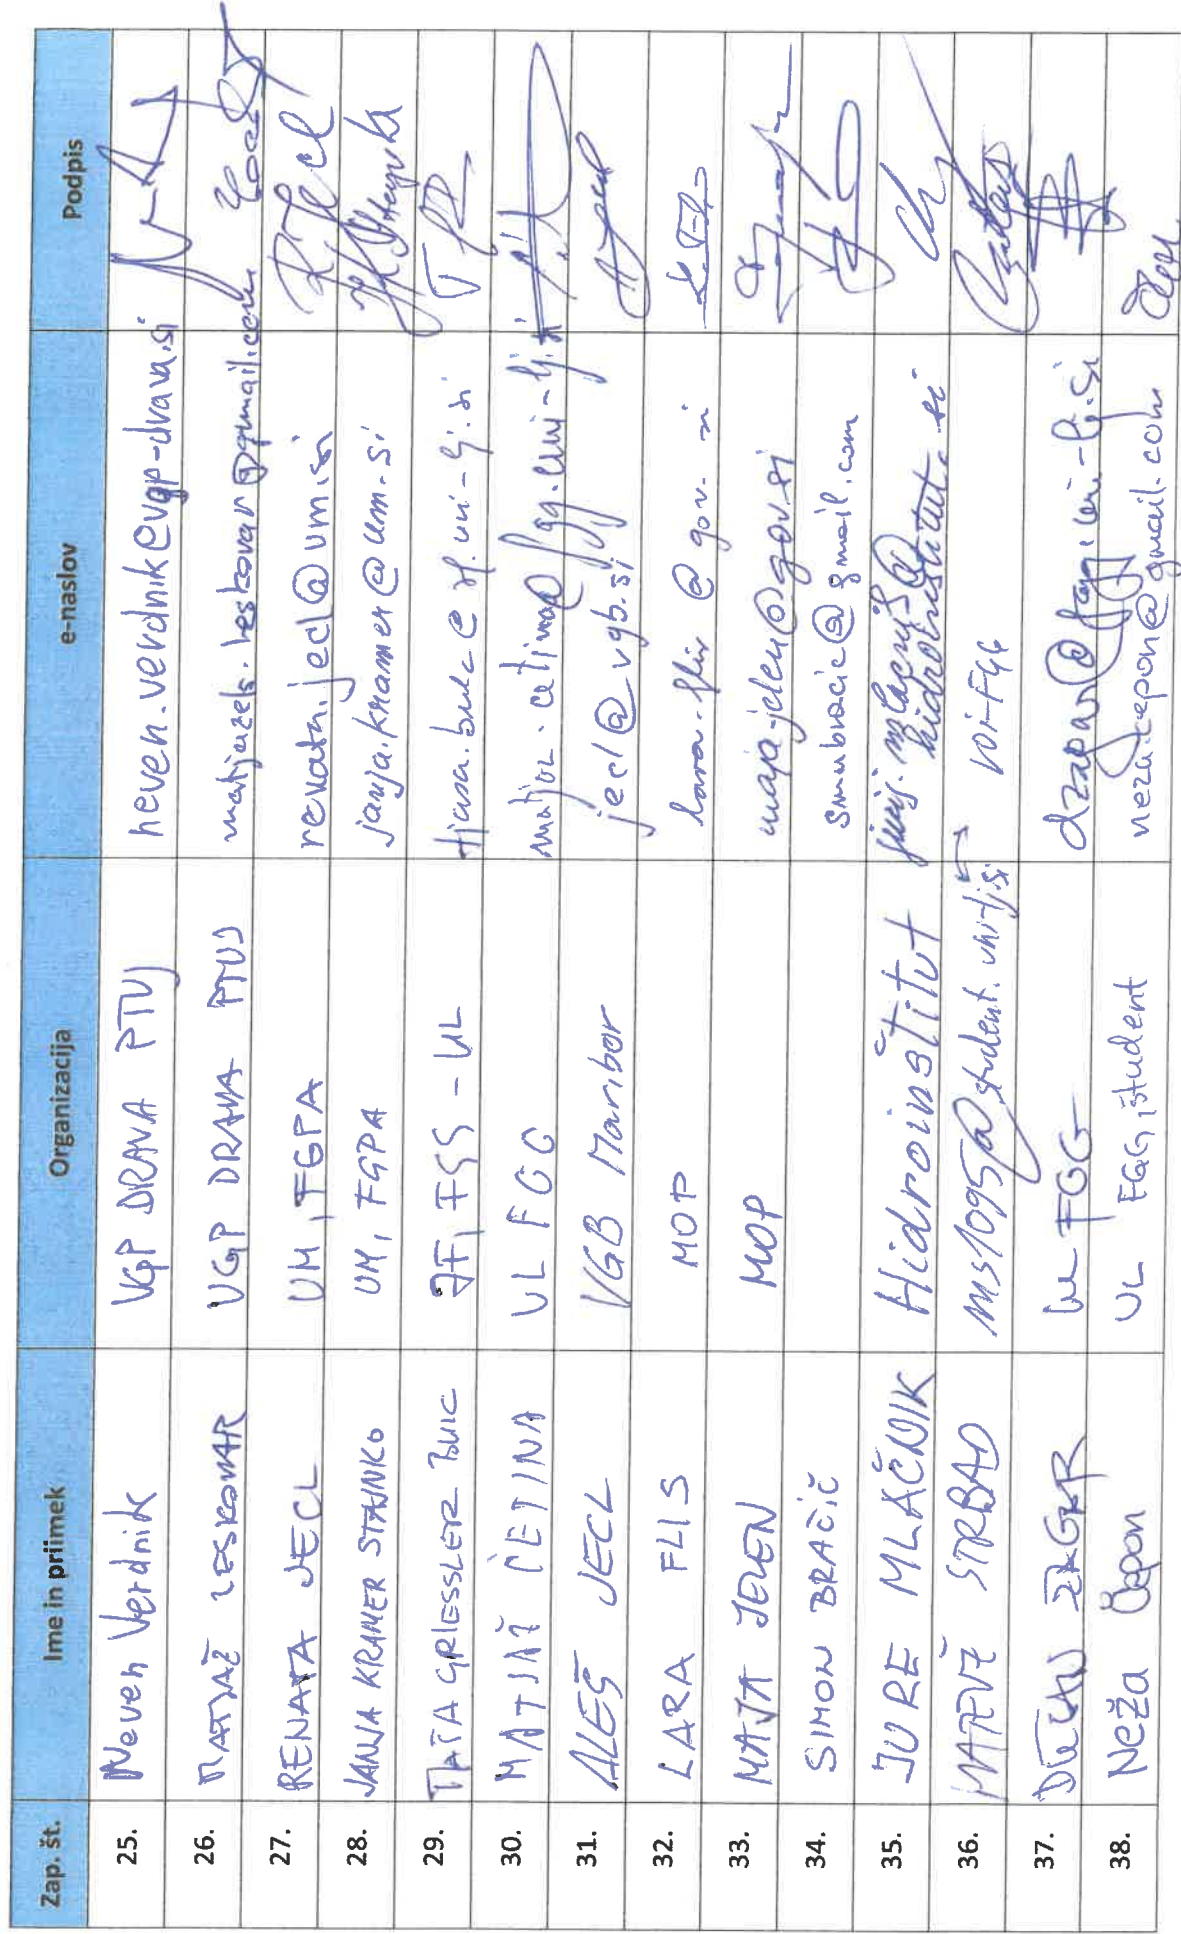 Zap. št. Ime in priimek Organizacija e-naslov Podpis
25. Neven Verdnik VGP DRAVA PTUJ neven.verdnik@vgp-drava.si
26. MATJAŽ LESKOVAR VGP DRAVA PTUJ matjazels.leskovar@gmail.com
27. RENATA JECL UM, FGPA renata.jecl@um.si R Jecl
28. JANJA KRAMER STAJNKO UM, FGPA janja.kramer@um.si
29. GRIESSLER BULC ZF, FGG - UL tjasa.bulc@zf.uni-lj.si
30. MATJAŽ ČETINA UL FGG matjaz.cetina@fgg.uni-lj.si
31. ALEŠ JECL VGB Maribor jecl@vgb.si
32. LARA FLIS MOP lara.flis@gov.si
33. MAJA JELEN MOP maja.jelen@gov.si
34. SIMON BRAČIČ simubracic@gmail.com
35. JURE MLAČNIK Hidroinštitut jurij.mlacnik@hidroinstitut.si
36. MATEVŽ STRBAD ms1095@student.uni-lj.si VOI-FGG
37. ŽAGAR UL FGG dzagar@fgg.uni-lj.si
38. Neža Čepon UL FGG, študent neza.cepon@gmail.com